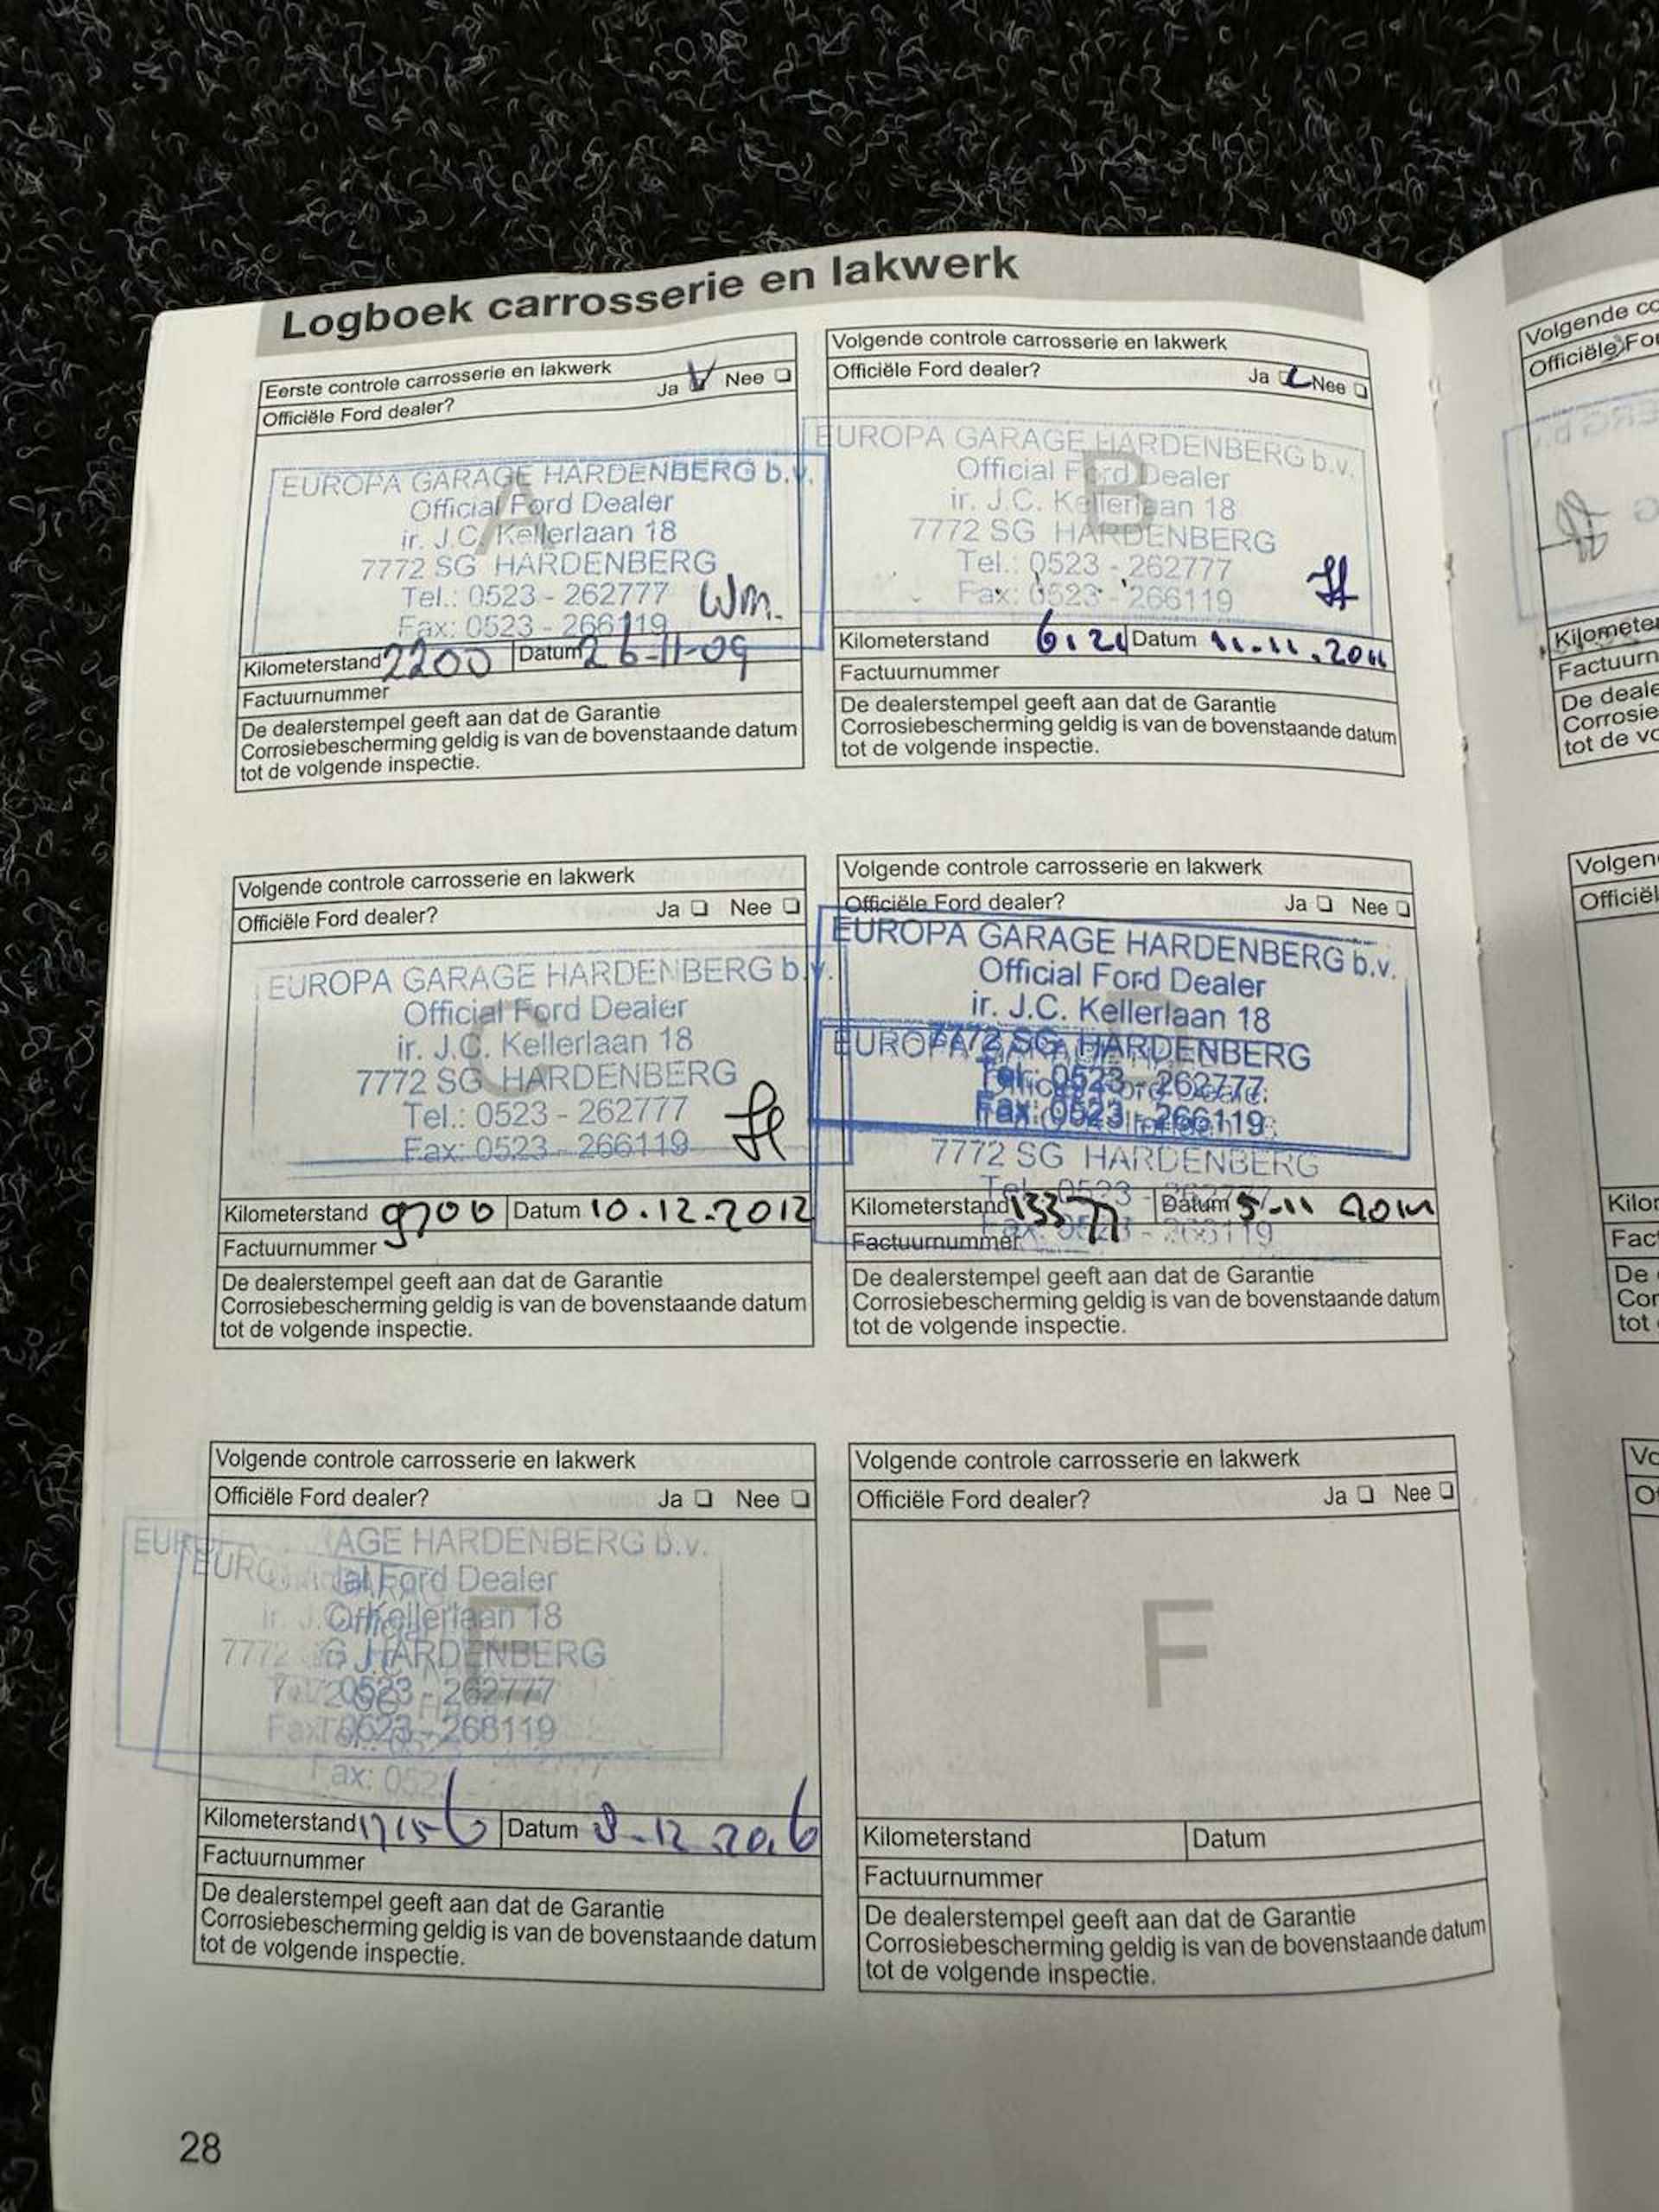 Logboek carrosserie en lakwerk
Eerste controle carrosserie en lakwerk
Officiële Ford dealer? Ja Nee
EUROPA GARAGE HARDENBERG b.v.
Official Ford Dealer
ir. J.C. Kellerlaan 18
7772 SG HARDENBERG
Tel.: 0523 - 262777
Wm.
Fax: 0523 - 266119
A
Kilometerstand 2200 Datum 26-11-09
Factuurnummer
De dealerstempel geeft aan dat de Garantie
Corrosiebescherming geldig is van de bovenstaande datum
tot de volgende inspectie.
Volgende controle carrosserie en lakwerk
Officiële Ford dealer? Ja Nee
EUROPA GARAGE HARDENBERG b.v.
Official Ford Dealer
ir. J.C. Kellerlaan 18
7772 SG HARDENBERG
Tel.: 0523 - 262777
Fax: 0523 - 266119
B
Kilometerstand Datum 11.11.2011
Factuurnummer
De dealerstempel geeft aan dat de Garantie
Corrosiebescherming geldig is van de bovenstaande datum
tot de volgende inspectie.
Volgende controle carrosserie en lakwerk
Officiële Ford dealer? Ja Nee
EUROPA GARAGE HARDENBERG b.v.
Official Ford Dealer
ir. J.C. Kellerlaan 18
7772 SG HARDENBERG
Tel.: 0523 - 262777
Fax: 0523 - 266119
C
Kilometerstand 9700 Datum 10.12.2012
Factuurnummer
De dealerstempel geeft aan dat de Garantie
Corrosiebescherming geldig is van de bovenstaande datum
tot de volgende inspectie.
Volgende controle carrosserie en lakwerk
Officiële Ford dealer? Ja Nee
EUROPA GARAGE HARDENBERG b.v.
Official Ford Dealer
ir. J.C. Kellerlaan 18
7772 SG HARDENBERG
EUROPA
Tel.: 0523 - 262777
Fax: 0523 - 266119
7772 SG HARDENBERG
Kilometerstand 13377 Datum 5-11
Factuurnummer
De dealerstempel geeft aan dat de Garantie
Corrosiebescherming geldig is van de bovenstaande datum
tot de volgende inspectie.
Volgende controle carrosserie en lakwerk
Officiële Ford dealer? Ja Nee
AGE HARDENBERG b.v.
Ford Dealer
Kellerlaan 18
7772 HARDENBERG
0523 - 262777
Fax
E
Fax: 052
Kilometerstand Datum 8-12 2016
Factuurnummer
De dealerstempel geeft aan dat de Garantie
Corrosiebescherming geldig is van de bovenstaande datum
tot de volgende inspectie.
Volgende controle carrosserie en lakwerk
Officiële Ford dealer? Ja Nee
F
Kilometerstand Datum
Factuurnummer
De dealerstempel geeft aan dat de Garantie
Corrosiebescherming geldig is van de bovenstaande datum
tot de volgende inspectie.
28
Volgende
Officiële
Factuurn
De deale
Corrosie
tot de vo